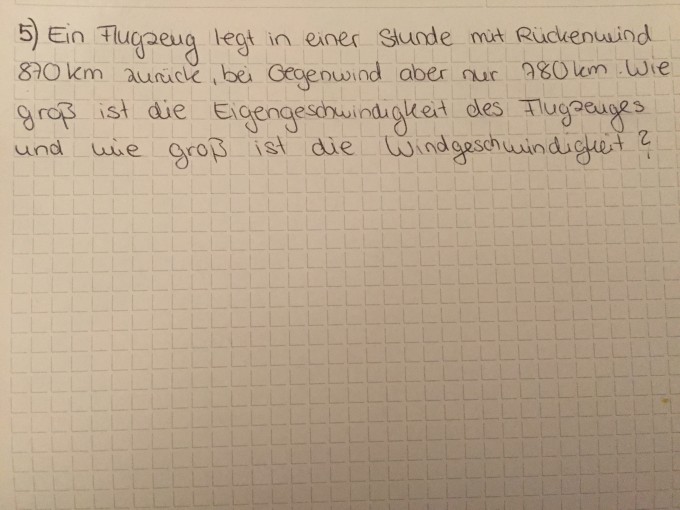 5) Ein Flugzeug legt in einer Stunde mit Rückenwind
870 km zurück, bei Gegenwind aber nur 780 km. Wie
groß ist die Eigengeschwindigkeit des Flugzeuges
und wie groß ist die Windgeschwindigkeit?